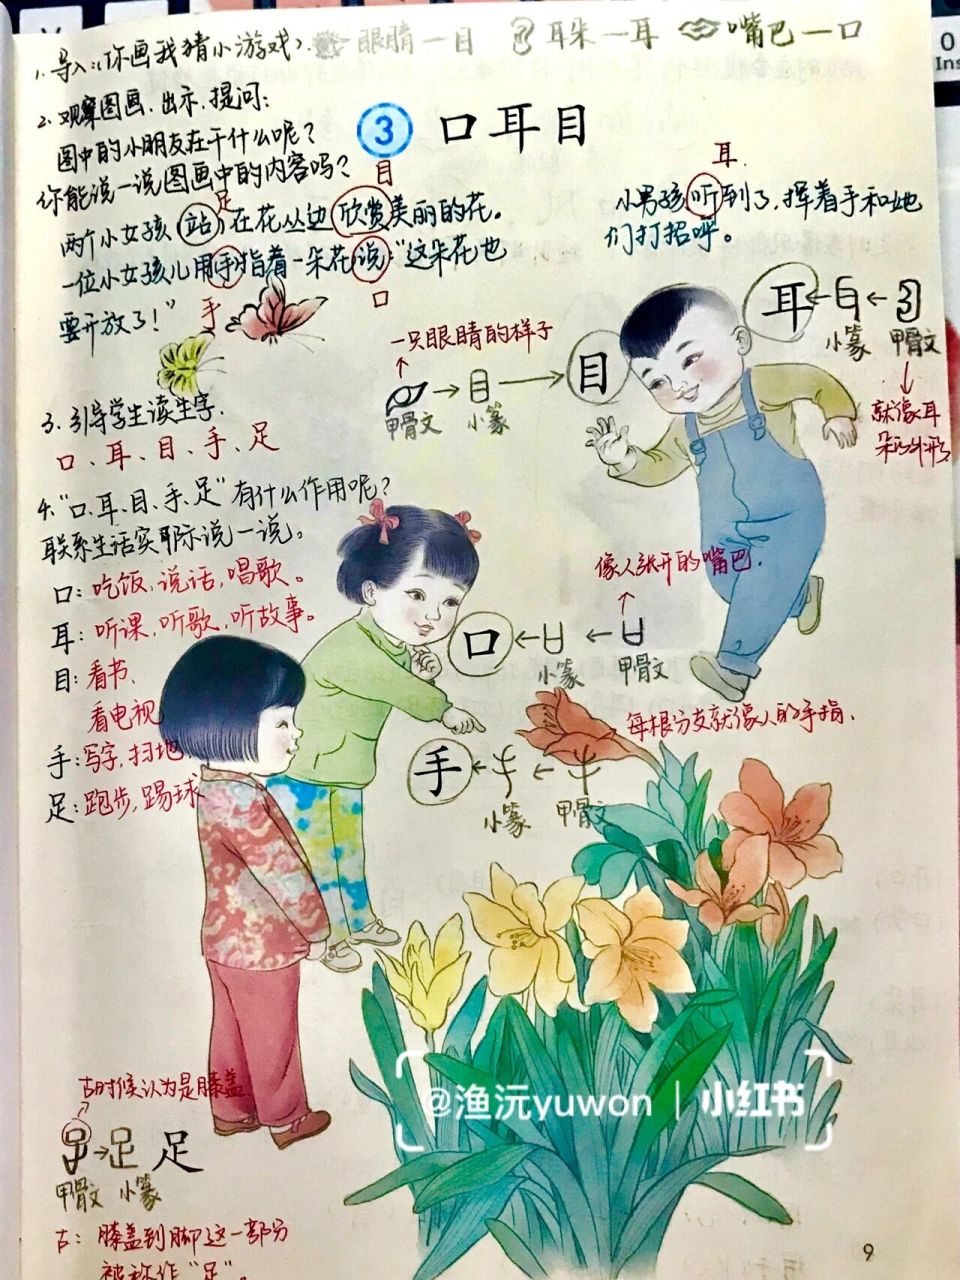 1. 导入:《你画我猜小游戏》. 眼睛—目 耳朵—耳 嘴巴—口
2. 观察图画,出示,提问:
图中的小朋友在干什么呢?
你能说一说图画中的内容吗?
3 口耳目
足 目
两个小女孩(站)在花丛边欣赏美丽的花。
一位小女孩儿用手指着一朵花说:“这朵花也
要开放了!”
手 口
耳.
小男孩听到了,挥着手和她
们打招呼。
一只眼睛的样子
甲骨文 → 目 小篆 → 目
耳 ← 小篆 ← 甲骨文
就像耳
朵的外形
3. 引导学生读生字.
口、耳、目、手、足
4.“口、耳、目、手、足”有什么作用呢?
联系生活实际说一说。
口:吃饭,说话,唱歌。
耳:听课,听歌,听故事。
目:看书、
看电视
手:写字,扫地
足:跑步,踢球
像人张开的嘴巴.
口 ← 小篆 ← 甲骨文
每根分支就像人的手指.
手 ← 小篆 ← 甲骨文
@渔沅yuwon | 小红书
古时候认为是膝盖
甲骨文 → 小篆 足
古:膝盖到脚这一部分
被称作“足”。
9
0
Ins